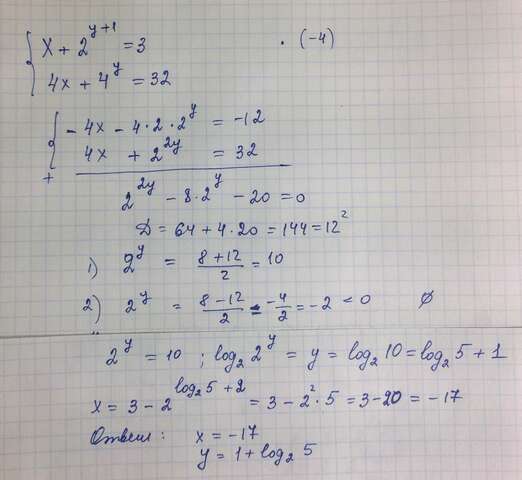 { x + 2^{y+1} = 3 · (-4)
4x + 4^y = 32
{ - 4x - 4·2·2^y = -12
+ 4x + 2^{2y} = 32
2^{2y} - 8·2^y - 20 = 0
D = 64 + 4·20 = 144 = 12^2
1) 2^y = \frac{8+12}{2} = 10
2) 2^y = \frac{8-12}{2} = \frac{-4}{2} = -2 < 0 ∅
2^y = 10 ; log_2 2^y = y = log_2 10 = log_2 5 + 1
x = 3 - 2^{log_2 5 + 2} = 3 - 2^2·5 = 3-20 = -17
Ответ: x = -17
y = 1 + log_2 5